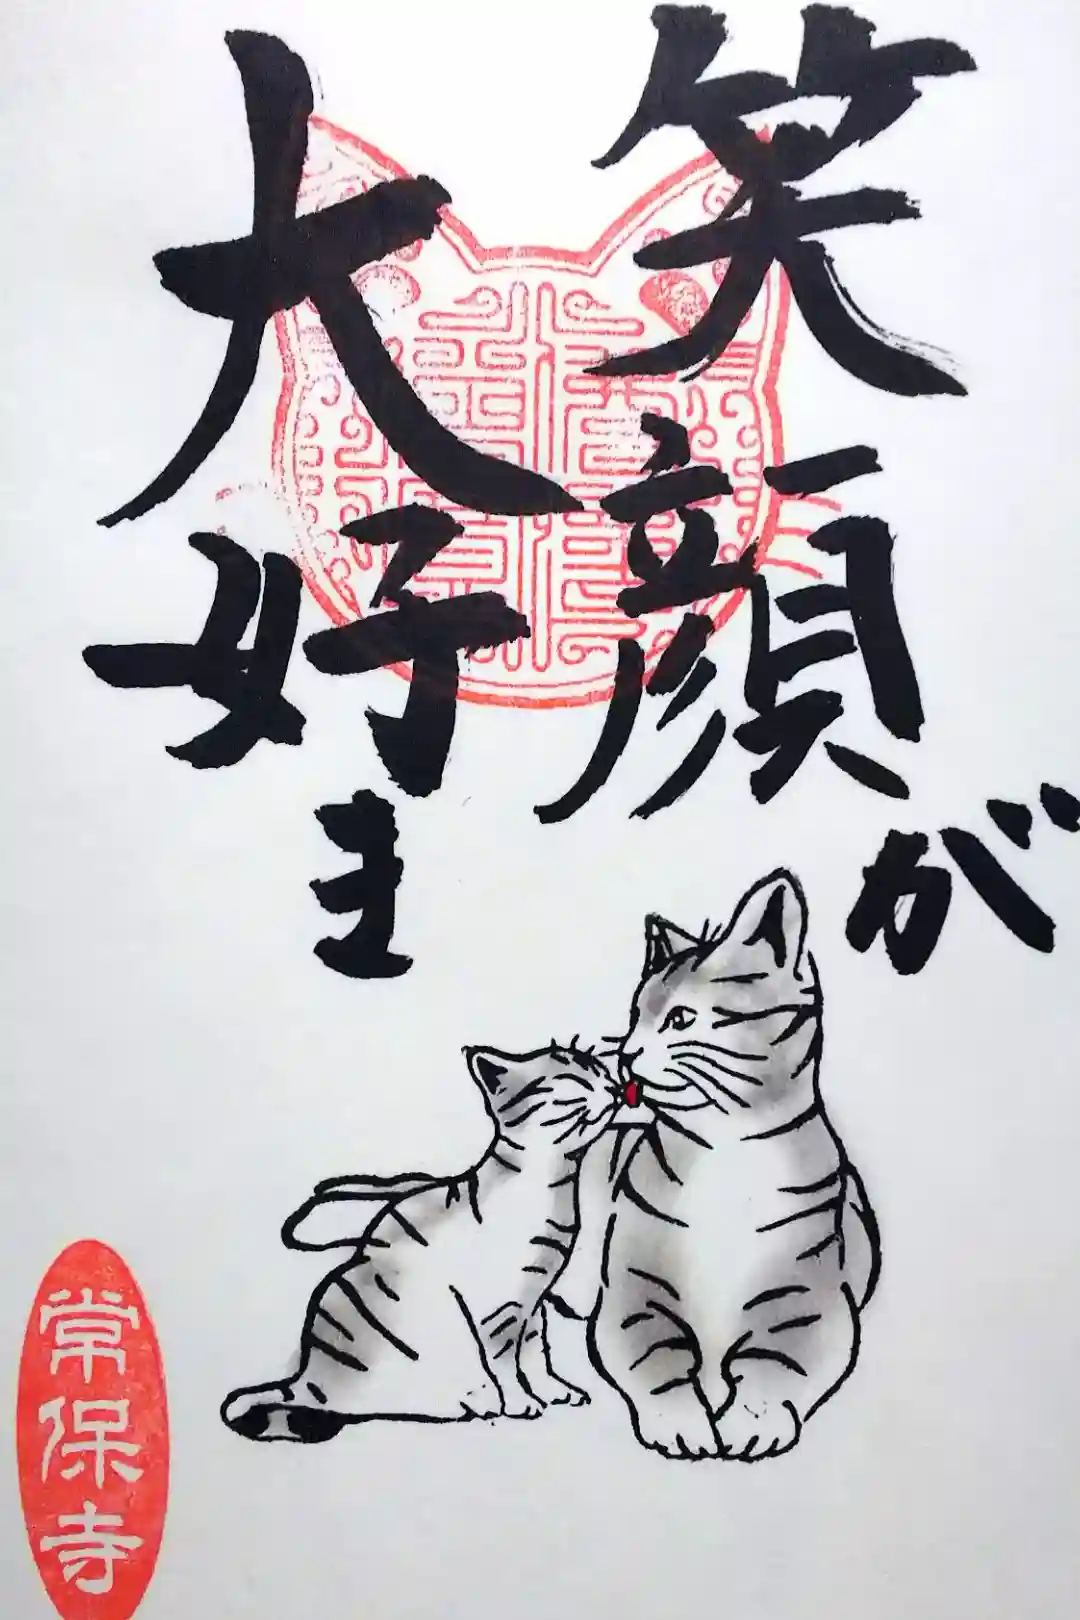 笑顔が
大好ま
常保寺